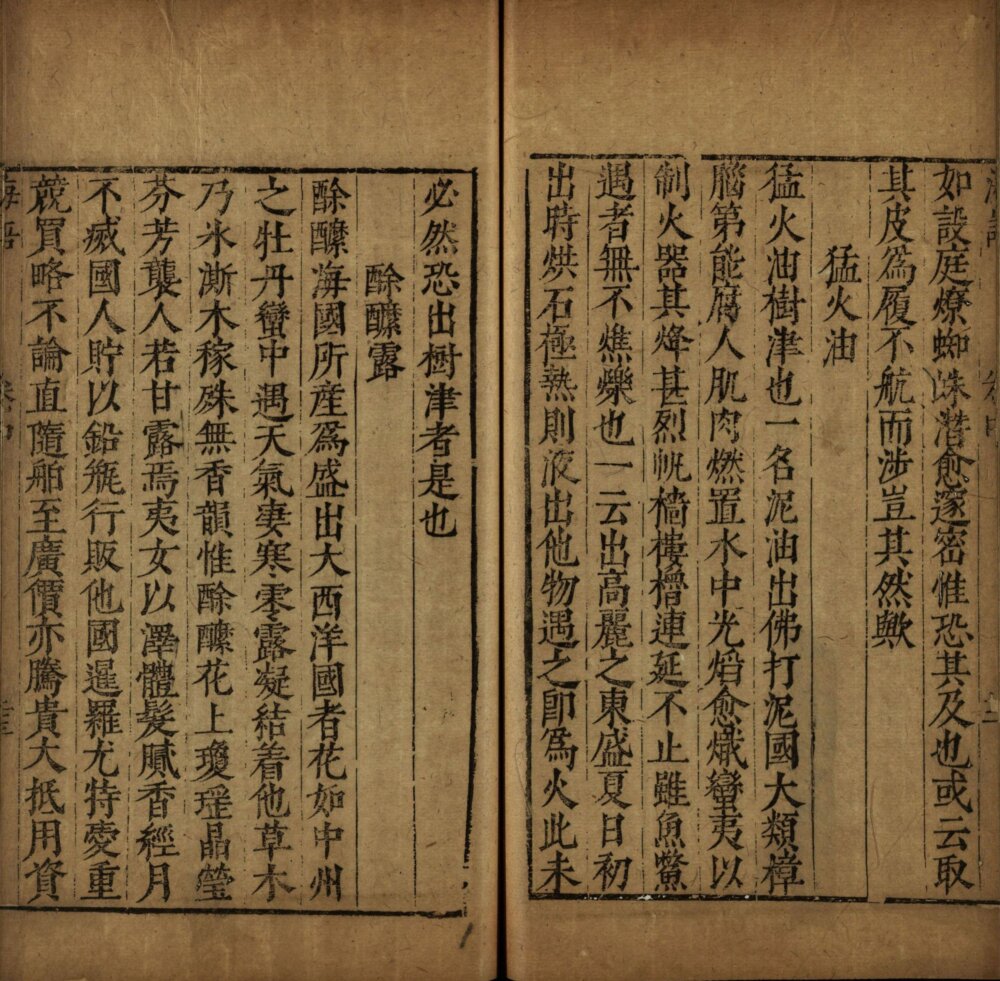 如設庭燎蜘蛛潛愈邃密惟恐其及也或云取
其皮為履不航而涉豈其然歟
猛火油
猛火油樹津也一名泥油出佛打泥國大類樟
腦第能腐人肌肉燃置水中光焰愈熾蠻夷以
制火器其烽甚烈帆檣樓櫓連延不止雖魚鱉
遇者無不燋爍也一云出高麗之東盛夏日初
出時烘石極熱則液出他物遇之即為火此未
必然恐出樹津者是也
酴醾露
酴醾海國所産為盛出大西洋國者花如中州
之牡丹蠻中遇天氣凄寒零露凝結着他草木
乃氷澌木稼殊無香韻惟酴醾花上瓊瑶晶瑩
芬芳襲人若甘露焉夷女以澤體髮膩香經月
不滅國人貯以鉛瓶行販他國暹羅尤特愛重
競買略不論直隨舶至廣價亦騰貴大抵用資
海語 卷中